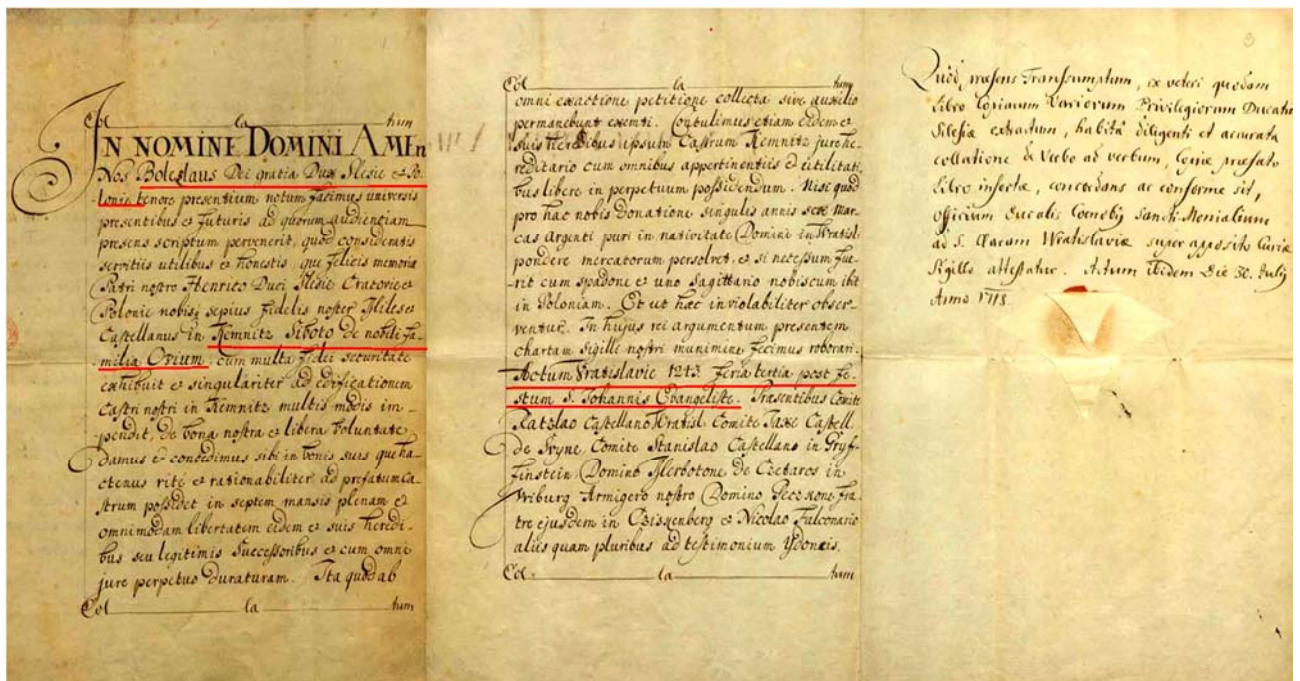 Col la tum
IN NOMINE DOMINI AMEn
Nos Boleslaus Dei gratia Dux Slesie et Po-
lonie tenore presentium notum facimus universis
presentibus et futuris ad quorum audientiam
presens scriptum pervenerit, quod consideratis
servitiis utilibus et honestis, que felicis memorie
Patri nostro Henrico Duci Slesie Cracovie et
Polonie nobis sepius fidelis noster Miles et
Castellanus in Kemnitz Siboto de nobili fa-
milia Ovium cum multa fidei securitate
exhibuit et singulariter ad edificationem
Castri nostri in Kemnitz multis modis im-
pendit, de bona nostra et libera voluntate
damus et concedimus sibi in bonis suis que ha-
ctenus rite et rationabiliter ad prefatum Ca-
strum possidet in septem mansis plenam et
omnimodam libertatem eidem et suis heredi-
bus seu legitimis Successoribus et cum omni
jure perpetuo duraturam. Ita quod ab
Col la tum
Col la tum
omni exactione petitione collecta sive auxilio
permanebunt exemti. Contulimus etiam eidem et
suis heredibus ipsum Castrum Kemnitz jure he-
reditario cum omnibus appertinentiis et utilitati-
bus libere in perpetuum possidendum. Nisi quod
pro hac nobis Donatione singulis annis sex Mar-
cas Argenti puri in nativitate Domini in Wratisl.
pondere mercatorum persolvet, et si necessum fue-
rit cum spadone et uno Sagittario nobiscum ibit
in Poloniam. Et ut hec inviolabiliter obser-
ventur. In hujus rei argumentum presentem
chartam Sigilli nostri munimine fecimus roborari.
Actum Vratislavie 1243 feria tertia post fe-
stum S. Johannis Evangeliste. Præsentibus Comite
Ratzlao Castellano Wratisl. Comite Taxe Castell.
de Svyne, Comite Stanislao Castellano in Gryf-
finstein, Domino de Czetaros in
Vriburg Armigero nostro Domino fra-
tre ejusdem in et Nicolao Falconario
aliis quam pluribus ad testimonium Ydoneis.
Col la tum
Quod præsens Transsumptum, ex veteri quodam
Libro Copiarum Variorum Privilegiorum Ducatus
Silesiæ extractum, habitâ diligenti et accurata
collatione de Verbo ad verbum, Copiæ præfato
Libro insertæ, concordans ac conforme sit,
Officium Ducalis Coenobij Sancti-Monialium
ad S. Claram Wratislaviæ super apposito Curiæ
Sigillo attestatur. Actum ibidem Die 30. Julij
Anno 1718.